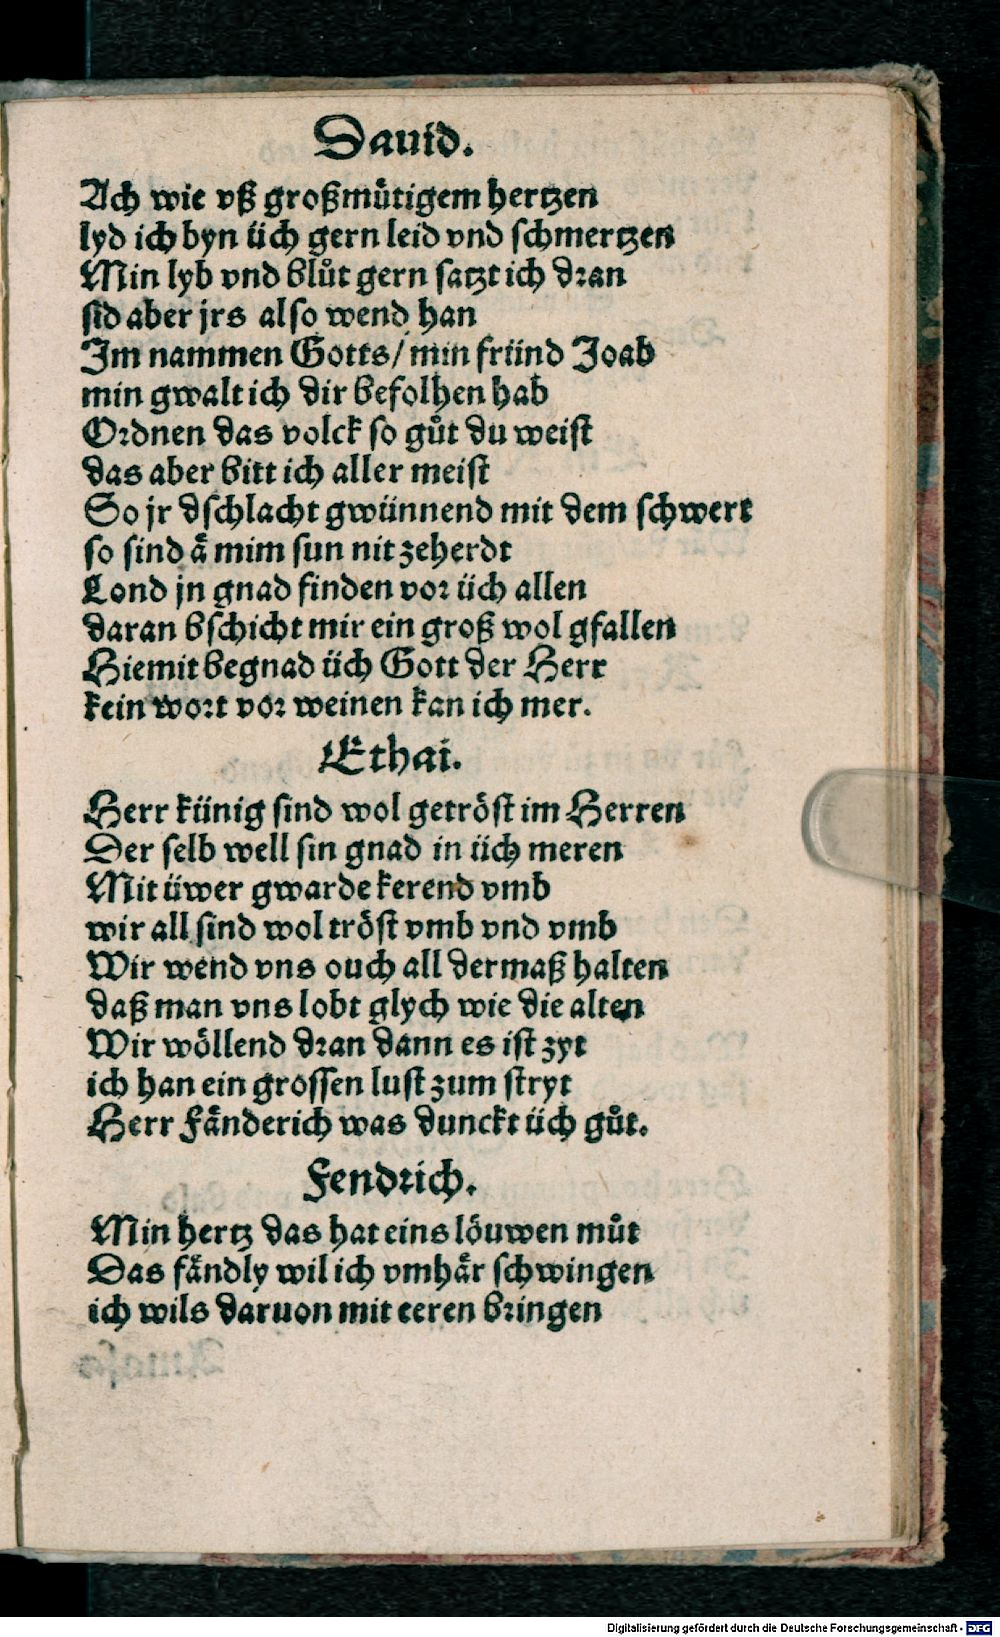 Dauid.
Ach wie vß großmuͤtigem hertzen
lyd ich byn üch gern leid vnd schmertzen
Min lyb vnd bluͦt gern satzt ich dran
sid aber jrs also wend han
Im nammen Gotts / min fründ Joab
min gwalt ich dir befolhen hab
Ordnen das volck so guͦt du weist
das aber bitt ich aller meist
So jr dschlacht gwünnend mit dem schwert
so sind aͤ mim sun nit zeherdt
Lond jn gnad finden vor üch allen
daran bschicht mir ein groß wol gfallen
Hiemit begnad üch Gott der Herr
kein wort vor weinen kan ich mer.
Ethai.
Herr künig sind wol getroͤst im Herren
Der selb well sin gnad in üch meren
Mit üwer gwarde kerend vmb
wir all sind wol troͤst vmb vnd vmb
Wir wend vns ouch all dermaß halten
daß man vns lobt glych wie die alten
Wir woͤllend dran dann es ist zyt
ich han ein grossen lust zum stryt
Herr Faͤnderich was dunckt üch guͦt.
Fendrich.
Min hertz das hat eins loͤuwen muͦt
Das faͤndly wil ich vmhaͤr schwingen
ich wils daruon mit eeren bringen
Digitalisierung gefördert durch die Deutsche Forschungsgemeinschaft - DFG